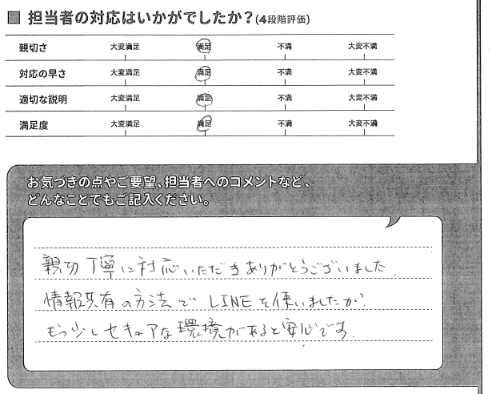 ■ 担当者の対応はいかがでしたか？(4段階評価)
親切さ 大変満足 満足 不満 大変不満
対応の早さ 大変満足 満足 不満 大変不満
適切な説明 大変満足 満足 不満 大変不満
満足度 大変満足 満足 不満 大変不満
お気づきの点やご要望、担当者へのコメントなど、
どんなことでもご記入ください。
親切丁寧に対応いただきありがとうございました.
情報共有の方法で LINEを使いましたが.
もう少しセキュアな環境があると安心です.